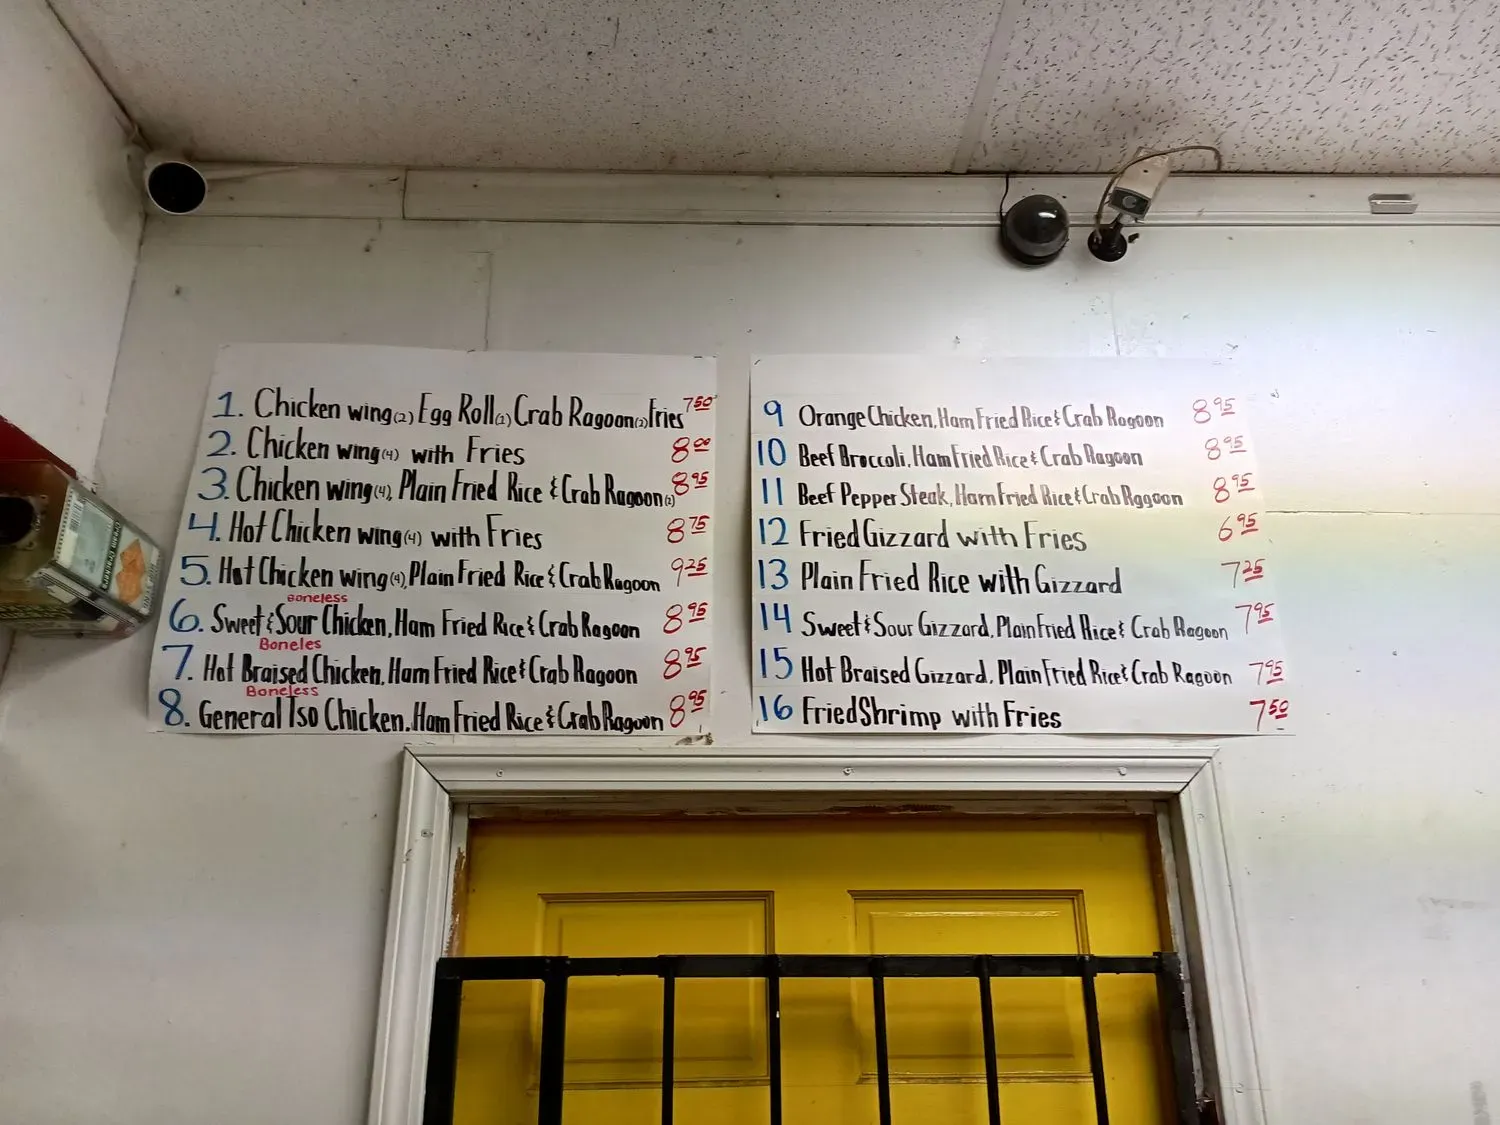 1. Chicken wing(2) Egg Roll(1) Crab Ragoon(2) Fries 7.50
2. Chicken wing(4) with Fries 8.00
3. Chicken wing(4), Plain Fried Rice & Crab Ragoon(2) 8.95
4. Hot Chicken wing(4) with Fries 8.75
5. Hot Chicken wing(4), Plain Fried Rice & Crab Ragoon 9.25
Boneless
6. Sweet & Sour Chicken, Ham Fried Rice & Crab Ragoon 8.95
Boneles
7. Hot Braised Chicken, Ham Fried Rice & Crab Ragoon 8.95
Boneless
8. General Tso Chicken, Ham Fried Rice & Crab Ragoon 8.95
9 Orange Chicken, Ham Fried Rice & Crab Ragoon 8.95
10 Beef Broccoli, Ham Fried Rice & Crab Ragoon 8.95
11 Beef Pepper Steak, Ham Fried Rice & Crab Ragoon 8.95
12 Fried Gizzard with Fries 6.95
13 Plain Fried Rice with Gizzard 7.25
14 Sweet & Sour Gizzard, Plain Fried Rice & Crab Ragoon 7.95
15 Hot Braised Gizzard, Plain Fried Rice & Crab Ragoon 7.95
16 Fried Shrimp with Fries 7.50